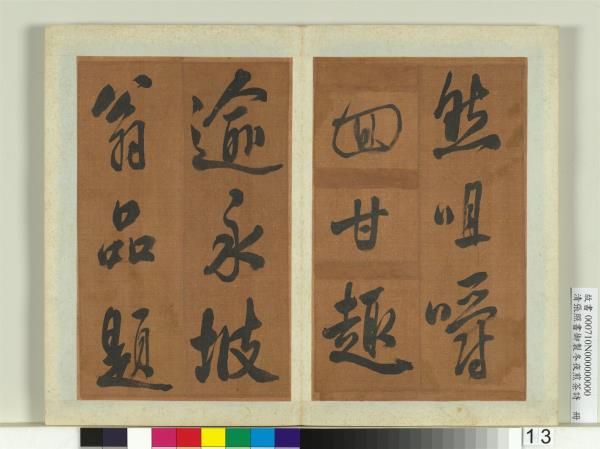 然咀嚼
回甘趣
逾永坡
翁品題
故書000710N000000000
清張照書御製冬夜煎茶詩 冊
13